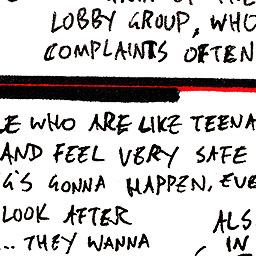 LOBBY GROUP, WHO
COMPLAINTS OFTEN
WHO ARE LIKE
AND FEEL VERY SAFE
GONNA HAPPEN,
LOOK AFTER
... THEY WANNA
IN